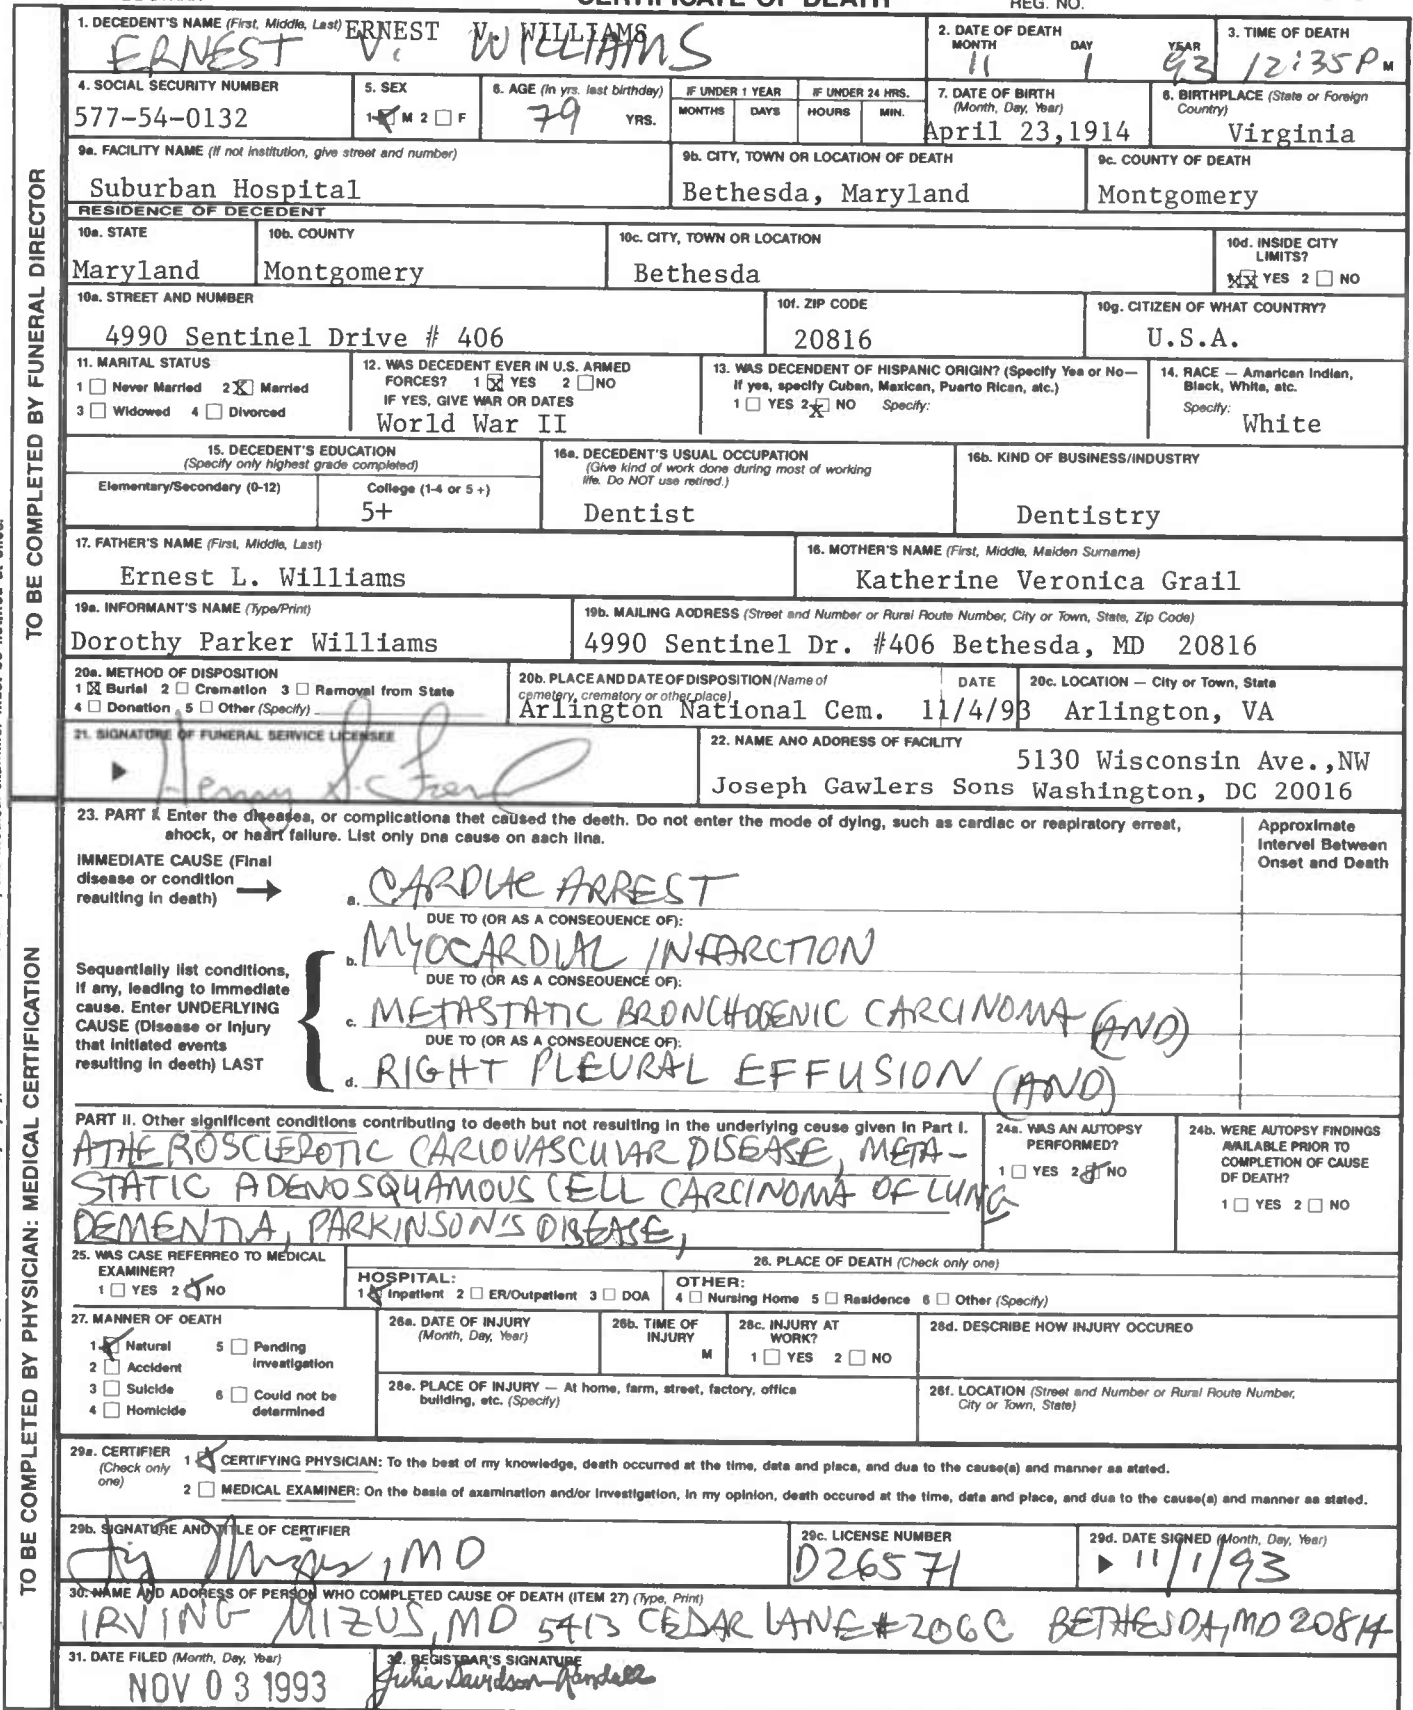 CERTIFICATE OF DEATH
REG. NO.
TO BE COMPLETED BY FUNERAL DIRECTOR
1. DECEDENT'S NAME (First, Middle, Last) ERNEST V. WILLIAMS
ERNEST V. WILLIAMS
2. DATE OF DEATH
MONTH DAY YEAR
11 1 93
3. TIME OF DEATH
12:35 P M
4. SOCIAL SECURITY NUMBER
577-54-0132
5. SEX
1 M 2 F
6. AGE (In yrs. last birthday)
79 YRS.
IF UNDER 1 YEAR
MONTHS DAYS
IF UNDER 24 HRS.
HOURS MIN.
7. DATE OF BIRTH
(Month, Day, Year)
April 23,1914
8. BIRTHPLACE (State or Foreign
Country)
Virginia
9a. FACILITY NAME (If not institution, give street and number)
Suburban Hospital
9b. CITY, TOWN OR LOCATION OF DEATH
Bethesda, Maryland
9c. COUNTY OF DEATH
Montgomery
RESIDENCE OF DECEDENT
10a. STATE
Maryland
10b. COUNTY
Montgomery
10c. CITY, TOWN OR LOCATION
Bethesda
10d. INSIDE CITY
LIMITS?
XX YES 2 NO
10e. STREET AND NUMBER
4990 Sentinel Drive # 406
10f. ZIP CODE
20816
10g. CITIZEN OF WHAT COUNTRY?
U.S.A.
11. MARITAL STATUS
1 Never Married 2 X Married
3 Widowed 4 Divorced
12. WAS DECEDENT EVER IN U.S. ARMED
FORCES? 1 X YES 2 NO
IF YES, GIVE WAR OR DATES
World War II
13. WAS DECENDENT OF HISPANIC ORIGIN? (Specify Yes or No—
If yes, specify Cuban, Mexican, Puerto Rican, etc.)
1 YES 2 X NO Specify:
14. RACE — American Indian,
Black, White, etc.
Specify:
White
15. DECEDENT'S EDUCATION
(Specify only highest grade completed)
Elementary/Secondary (0-12)
College (1-4 or 5 +)
5+
16a. DECEDENT'S USUAL OCCUPATION
(Give kind of work done during most of working
life. Do NOT use retired.)
Dentist
16b. KIND OF BUSINESS/INDUSTRY
Dentistry
17. FATHER'S NAME (First, Middle, Last)
Ernest L. Williams
18. MOTHER'S NAME (First, Middle, Maiden Surname)
Katherine Veronica Grail
19a. INFORMANT'S NAME (Type/Print)
Dorothy Parker Williams
19b. MAILING ADDRESS (Street and Number or Rural Route Number, City or Town, State, Zip Code)
4990 Sentinel Dr. #406 Bethesda, MD 20816
20a. METHOD OF DISPOSITION
1 X Burial 2 Cremation 3 Removal from State
4 Donation 5 Other (Specify)
20b. PLACE AND DATE OF DISPOSITION (Name of
cemetery, crematory or other place)
DATE
Arlington National Cem. 11/4/93
20c. LOCATION — City or Town, State
Arlington, VA
21. SIGNATURE OF FUNERAL SERVICE LICENSEE
Henry S.
22. NAME AND ADDRESS OF FACILITY
5130 Wisconsin Ave.,NW
Joseph Gawlers Sons Washington, DC 20016
TO BE COMPLETED BY PHYSICIAN: MEDICAL CERTIFICATION
23. PART I. Enter the diseases, or complications that caused the death. Do not enter the mode of dying, such as cardiac or respiratory arrest,
shock, or heart failure. List only one cause on each line.
Approximate
Interval Between
Onset and Death
IMMEDIATE CAUSE (Final
disease or condition
resulting in death)
a. CARDIAC ARREST
DUE TO (OR AS A CONSEQUENCE OF):
b. MYOCARDIAL INFARCTION
DUE TO (OR AS A CONSEQUENCE OF):
Sequentially list conditions,
if any, leading to immediate
cause. Enter UNDERLYING
CAUSE (Disease or injury
that initiated events
resulting in death) LAST
c. METASTATIC BRONCHOGENIC CARCINOMA (AND)
DUE TO (OR AS A CONSEQUENCE OF):
d. RIGHT PLEURAL EFFUSION (AND)
PART II. Other significant conditions contributing to death but not resulting in the underlying cause given in Part I.
ATHEROSCLEROTIC CARIOVASCULAR DISEASE, META-
STATIC ADENOSQUAMOUS CELL CARCINOMA OF LUNG
DEMENTIA, PARKINSON'S DISEASE,
24a. WAS AN AUTOPSY
PERFORMED?
1 YES 2 NO
24b. WERE AUTOPSY FINDINGS
AVAILABLE PRIOR TO
COMPLETION OF CAUSE
OF DEATH?
1 YES 2 NO
25. WAS CASE REFERRED TO MEDICAL
EXAMINER?
1 YES 2 NO
26. PLACE OF DEATH (Check only one)
HOSPITAL:
1 Inpatient 2 ER/Outpatient 3 DOA
OTHER:
4 Nursing Home 5 Residence 6 Other (Specify)
27. MANNER OF DEATH
1 Natural 5 Pending
2 Accident Investigation
3 Suicide 6 Could not be
4 Homicide determined
28a. DATE OF INJURY
(Month, Day, Year)
28b. TIME OF
INJURY
M
28c. INJURY AT
WORK?
1 YES 2 NO
28d. DESCRIBE HOW INJURY OCCURED
28e. PLACE OF INJURY — At home, farm, street, factory, office
building, etc. (Specify)
28f. LOCATION (Street and Number or Rural Route Number,
City or Town, State)
29a. CERTIFIER
(Check only
one)
1 CERTIFYING PHYSICIAN: To the best of my knowledge, death occurred at the time, date and place, and due to the cause(s) and manner as stated.
2 MEDICAL EXAMINER: On the basis of examination and/or investigation, in my opinion, death occured at the time, date and place, and due to the cause(s) and manner as stated.
29b. SIGNATURE AND TITLE OF CERTIFIER
, MD
29c. LICENSE NUMBER
D26571
29d. DATE SIGNED (Month, Day, Year)
11/1/93
30. NAME AND ADDRESS OF PERSON WHO COMPLETED CAUSE OF DEATH (ITEM 27) (Type, Print)
IRVING MIZUS, MD 5413 CEDAR LANE #206C BETHESDA, MD 20814
31. DATE FILED (Month, Day, Year)
NOV 03 1993
32. REGISTRAR'S SIGNATURE
Julia Davidson-Randall